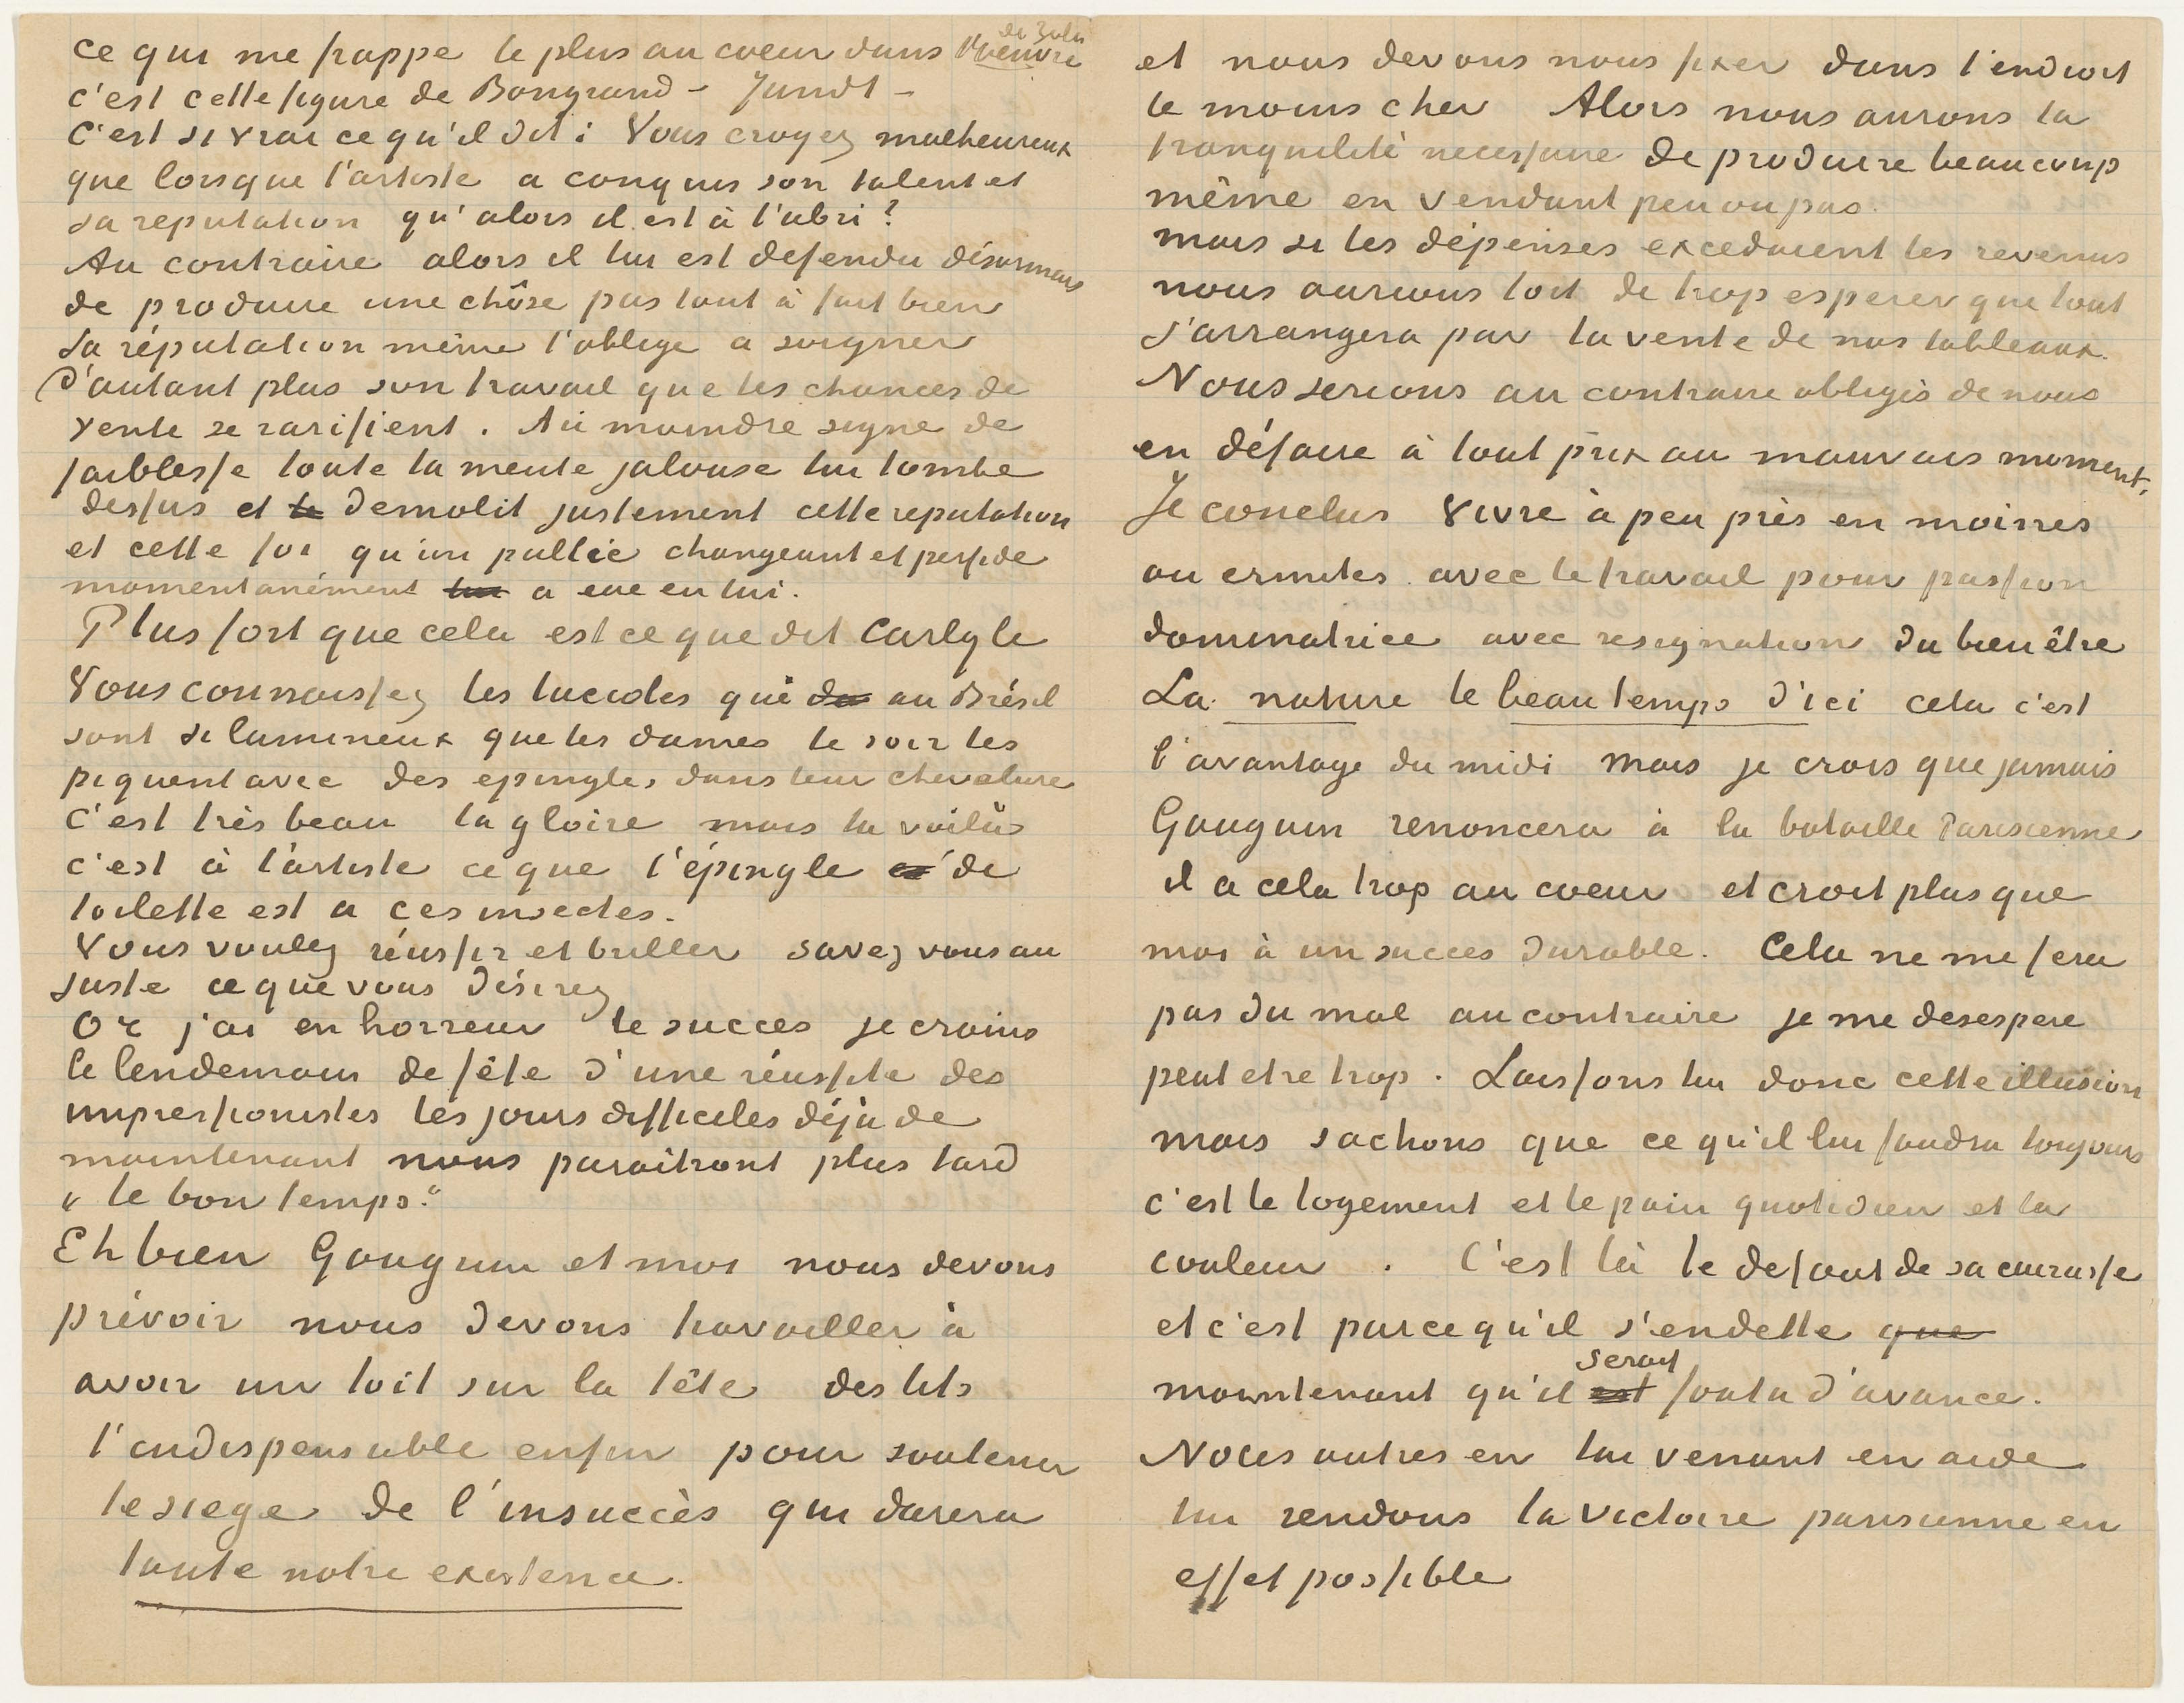 ce qui me frappe le plus au coeur dans l'oeuvre de Zola
c'est cette figure de Bongrand – Jundt –
C'est si vrai ce qu'il dit: Vous croyez malheureux
que lorsque l'artiste a conquis son talent et
sa reputation qu'alors il est à l'abri?
Au contraire alors il lui est defendu désormais
de produire une chôse pas tout à fait bien
Sa réputation même l'oblige a soigner
d'autant plus son travail que les chances de
vente se rarifient. Au moindre signe de
faiblesse toute la meute jalouse lui tombe
dessus et le demolit justement cette reputation
et cette foi qu'un public changeant et perfide
momentanément lui a eue en lui.
Plus fort que cela est ce que dit Carlyle
Vous connaissez les lucioles qui au Brésil
sont si lumineux que les dames le soir les
piquent avec des epingles dans leur chevelure
C'est très beau la gloire mais la voilà
c'est à l'artiste ce que l'épingle de
toilette est a ces insectes.
Vous voulez réussir et briller savez vous au
juste ce que vous désirez
Or j'ai en horreur le succes je crains
le lendemain de fête d'une réussite des
impressionistes les jours difficiles déjà de
maintenant nous paraitront plus tard
"le bon temps."
Eh bien Gauguin et moi nous devons
prévoir nous devons travailler à
avoir un toit sur la tête des lits
l'indispensable enfin pour soutenir
le siege de l'insuccès qui durera
toute notre existence.
et nous devons nous fixer dans l'endroit
le moins cher Alors nous aurons la
tranquilité necessaire de produire beaucoup
même en vendant peu ou pas.
mais si les dépenses excedaient les revenus
nous aurions tort de trop esperer que tout
s'arrangera par la vente de nos tableaux.
Nous serions au contraire obligés de nous
en défaire à tout prix au mauvais moment.
Je conclus Vivre à peu près en moines
ou ermites avec le travail pour passion
dominatrice avec resignation du bien être
La nature le beau temps d'ici cela c'est
l'avantage du midi Mais je crois que jamais
Gauguin renoncera à la bataille Parisienne
il a cela trop au coeur et croit plus que
moi à un succes durable. Cela ne me fera
pas du mal au contraire je me desespere
peut etre trop. Laissons lui donc cette illusion
mais sachons que ce qu'il lui faudra toujours
c'est le logement et le pain quotidien et la
couleur. C'est là le defaut de sa cuirasse
et c'est parcequ'il s'endette que
maintenant qu'il est serait foutu d'avance.
Nous autres en lui venant en aide
lui rendons la victoire parisienne en
effet possible